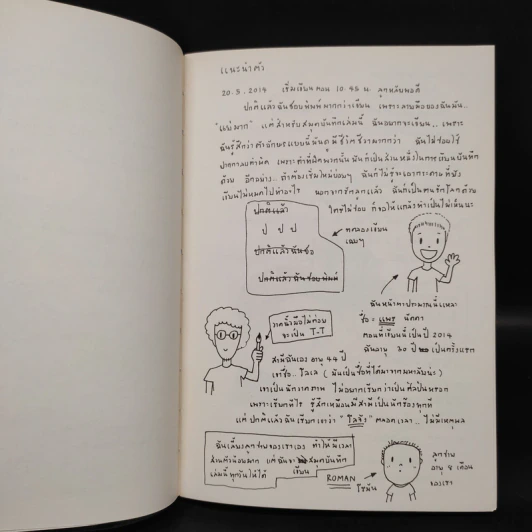 แนะนำตัว
20.5.2014 เริ่มเขียนตอน 10.45 น. ลูกหลับพอดี
ปกติแล้วฉันชอบพิมพ์มากกว่าเขียน เพราะลายมือของฉันมัน..
"แย่มาก" แต่สำหรับสมุดบันทึกเล่มนี้ ฉันอยากจะเขียน.. เพราะ
ฉันรู้สึกว่าตัวอักษรแบบนี้มันดูมีชีวิตชีวามากกว่า ฉันไม่ชอบใช้
ปากกาลบคำผิด เพราะคำที่ผิดพวกนั้น มันก็เป็นส่วนหนึ่งในการเขียนบันทึก
ด้วย อีกอย่าง.. ถ้าต้องเริ่มใหม่บ่อยๆ ฉันก็ไม่รู้จะเอากระดาษที่ยัง
เขียนไม่หมดไปทำอะไร นอกจากรักลูกแล้ว ฉันก็เป็นคนรักโลกด้วย
ใครไม่ชอบ ก็ขอให้แกล้งทำเป็นไม่เห็นนะ
ปกติแล้ว
ป ป ป
ปกติแล้วฉันชื่อ
ปกติแล้วฉันชอบพิมพ์
ทดลองเขียน
เฉยๆ
ฉันหน้าตาประมาณนี้แหละ
ชื่อ = แพร
ตอนที่เขียนนี้เป็นปี 2014
ฉันอายุ 30 ปี เป็นครั้งแรก
วาดนิ้วมือไม่ค่อย
จะเป็น T-T
สามีฉันเอง อายุ 44 ปี
เขาชื่อ.. โลเล (มันเป็นชื่อที่ได้มาจากมหาลัยน่ะ)
เขาเป็นนักวาดภาพ ไม่อยากเรียกว่าเป็นศิลปินหรอก
เพราะเรียกทีไร รู้สึกเหมือนมีสามีเป็นนักร้องทุกที
แต่ ปกติแล้วฉันเรียกเขาว่า ตลอดเวลา.. ไม่มีเหตุผล
ฉันเลี้ยงลูกชายของเราเอง ทำให้มีเวลา
ส่วนตัวน้อยมาก แต่ฉันจะ สมุดบันทึก
เขียน
เล่มนี้ทุกวันให้ได้
ROMAN
โรมัน
ลูกชาย
อายุ 8 เดือน
ของเรา